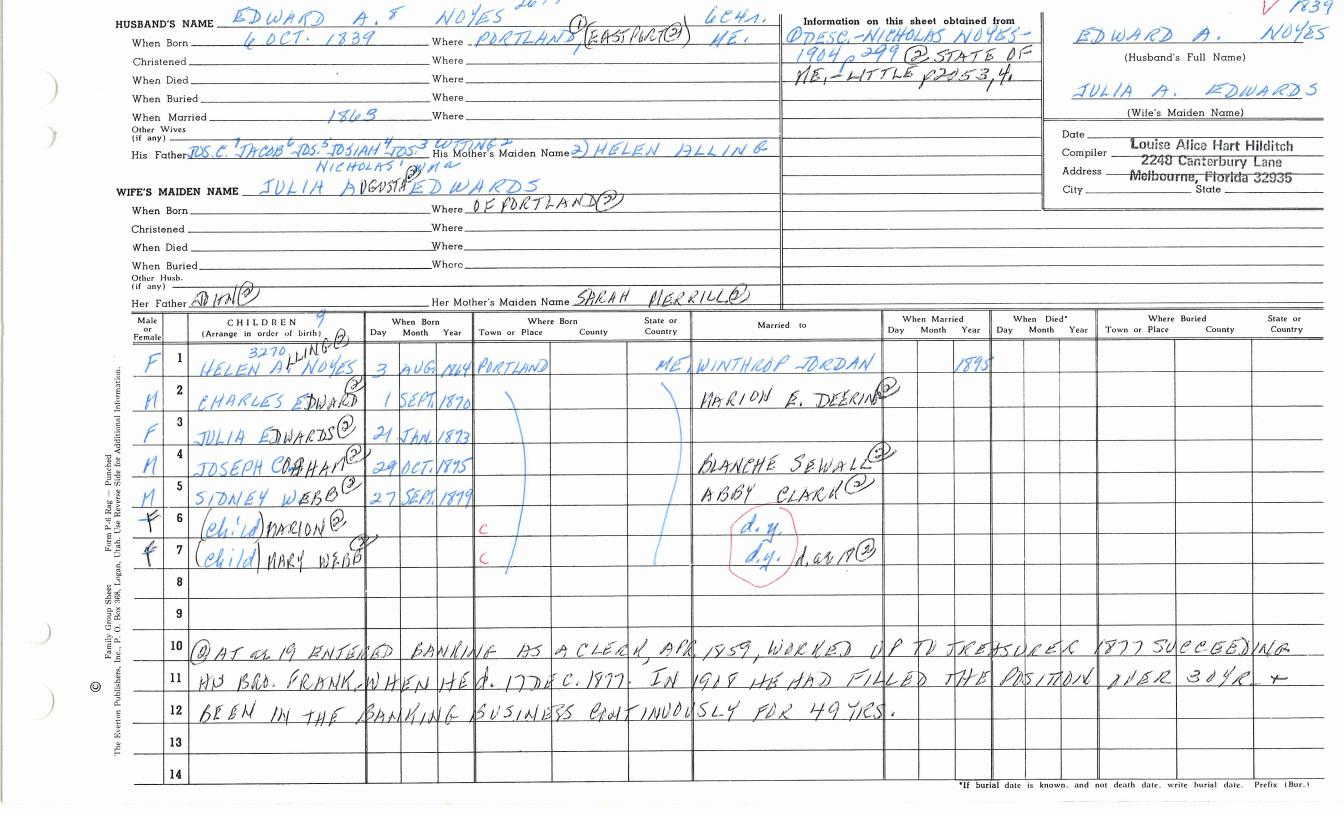 HUSBAND'S NAME EDWARD A. 8 NOYES 6 CH.
When Born 6 OCT. 1839 Where PORTLAND, ① (EASTPORT ②) ME.
Christened Where
When Died Where
When Buried Where
When Married 1863 Where
Other Wives
(if any)
His Father JOS. C. 7 JACOB 6 JOS. 5 JOSIAH 4 JOS 3 2 His Mother's Maiden Name 2) HELEN ALLING
NICHOLAS 1 WM a
WIFE'S MAIDEN NAME JULIA AUGUSTA ② EDWARDS
When Born Where OF PORTLAND ②
Christened Where
When Died Where
When Buried Where
Other Husb.
(if any)
Her Father JOHN ② Her Mother's Maiden Name SARAH MERRILL ②
Information on this sheet obtained from
① DESC.-NICHOLAS NOYES-
1904 p 299 ② STATE OF
ME,-LITTLE p2053,4.
✓ 1839
EDWARD A. NOYES
(Husband's Full Name)
JULIA A. EDWARDS
(Wife's Maiden Name)
Date
Compiler Louise Alice Hart Hilditch
Address 2248 Canterbury Lane
City Melbourne, Florida 32935 State
Male or Female CHILDREN 9 (Arrange in order of birth) When Born Day Month Year Where Born Town or Place County State or Country Married to When Married Day Month Year When Died* Day Month Year Where Buried Town or Place County State or Country
3270 LLING ②
F 1 HELEN A. NOYES 3 AUG. 1864 PORTLAND ME, WINTHROP JORDAN 1895
M 2 CHARLES EDWARD ② 1 SEPT. 1870 MARION E. DEERING ②
F 3 JULIA EDWARDS ② 21 JAN. 1873
M 4 JOSEPH ② 29 OCT. 1875 BLANCHE SEWALL ②
M 5 SIDNEY WEBB ② 27 SEPT. 1879 ABBY CLARK ②
F 6 (child) MARION ② c d.y.
F 7 (child) MARY WEBB ② c d.y. d. ae 17 ②
8
9
10 ② AT ae 19 ENTERED BANKING AS A CLERK, APR 1859, WORKED UP TO TREASURER 1877 SUCCEEDING
11 HIS BRO. FRANK WHEN HE d. 17 DEC. 1877. IN 1908 HE HAD FILLED THE POSITION OVER 30 YR +
12 BEEN IN THE BANKING BUSINESS CONTINUOUSLY FOR 49 YRS.
13
14
*If burial date is known, and not death date, write burial date. Prefix (Bur.)
Family Group Sheet Form P-8 Rag — Punched
© The Everton Publishers, Inc., P. O. Box 368, Logan, Utah. Use Reverse Side for Additional Information.